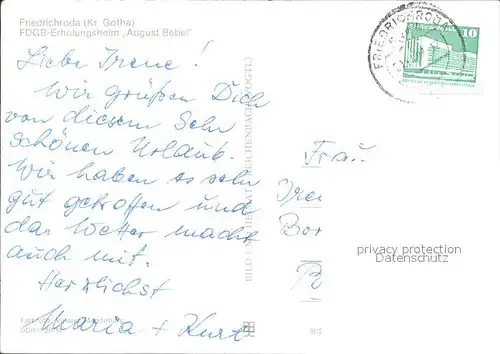 Friedrichroda (Kr. Gotha)
FDGB-Erholungsheim „August Bebel"
Liebe Irene!
Wir grüßen Dich
von diesem sehr
schönen Urlaub.
Wir haben es sehr
gut getroffen und
das Wetter macht
auch mit.
Herzlichst
Maria + Kurt
FRIEDRICHRODA
10
Frau
Irei
Bor
privacy protection
Datenschutz
BILD